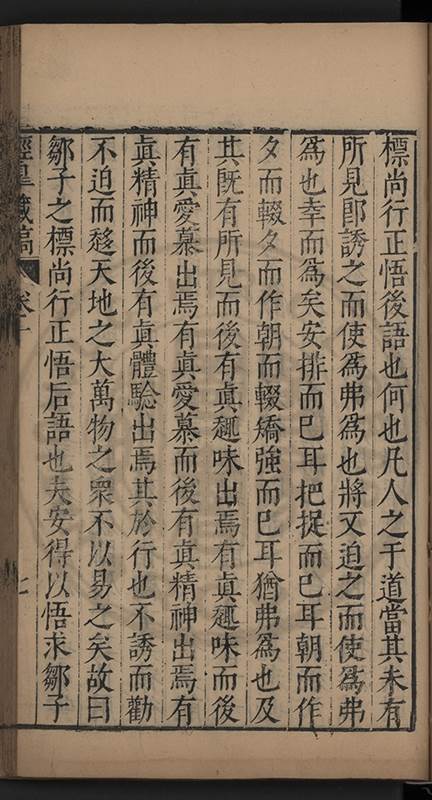 標尚行正悟後語也何也凡人之于道當其未有
所見卽誘之而使爲弗爲也將又迫之而使爲弗
爲也幸而爲矣安排而已耳把捉而已耳朝而作
夕而輟夕而作朝而輟矯強而已耳猶弗爲也及
其旣有所見而後有眞趣味出焉有眞趣味而後
有眞愛慕出焉有眞愛慕而後有眞精神出焉有
眞精神而後有眞體驗出焉其於行也不誘而勸
不迫而趍天地之大萬物之衆不以易之矣故曰
鄒子之標尚行正悟后語也夫安得以悟求鄒子
涇臯藏稿
卷十
七